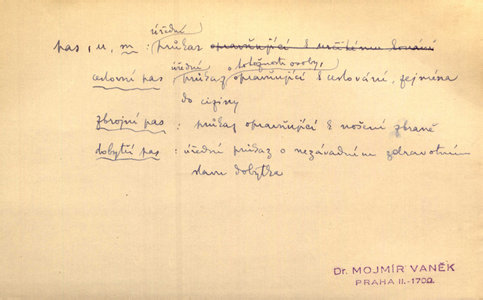 úřední
pas, u, m : průkaz opravňující k určitému konání
úřední o totožnosti osoby,
cestovní pas, průkaz opravňující k cestování, zejména
do ciziny
zbrojní pas : průkaz opravňující k nošení zbraně
dobytčí pas : úřední průkaz o nezávadném zdravotním
stavu dobytka
Dr. MOJMÍR VANĚK
PRAHA II.-1700.